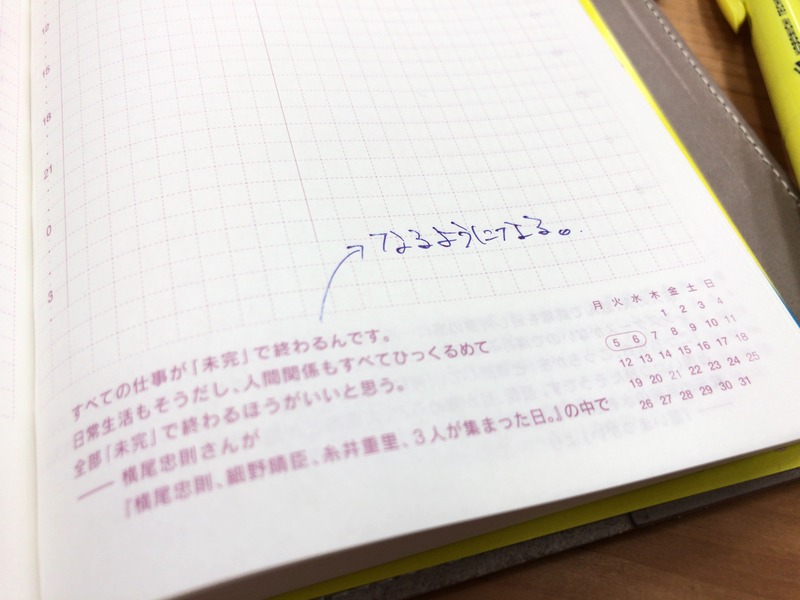 12
15
18
21
0
3
なるようになる。
すべての仕事が「未完」で終わるんです。
日常生活もそうだし、人間関係もすべてひっくるめて
全部「未完」で終わるほうがいいと思う。
── 横尾忠則さんが
『横尾忠則、細野晴臣、糸井重里、3人が集まった日。』の中で
月 火 水 木 金 土 日
1 2 3 4
5 6 7 8 9 10 11
12 13 14 15 16 17 18
19 20 21 22 23 24 25
26 27 28 29 30 31